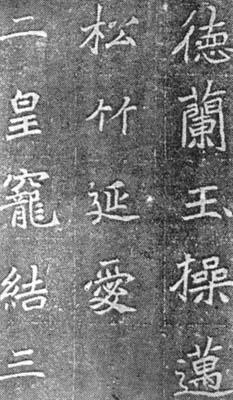 徳蘭玉操邁
松竹延愛
二皇寵結三